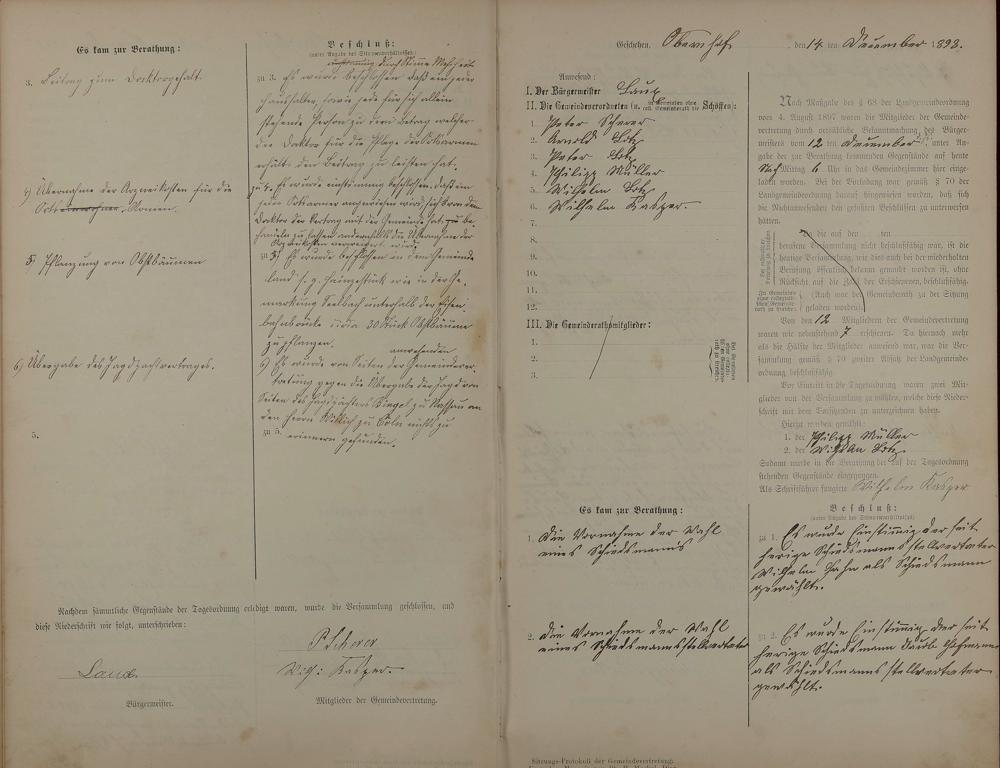 Es kam zur Berathung:
3. Beitrag zum Doktorgehalt.
4) Übernahme der Arzneikosten für die
Orts Armen.
5) Pflanzung von Obstbäumen
6) Übergabe des Jagdpachtvertrages.
5.
Beschluß:
(unter Angabe des Stimmenverhältnisses)
durch Stimmen Mehrheit
zu 3. Es wurde beschlossen daß ein jeder
Haushalter, sowie jede für sich allein
stehende Person zu dem Betrag welcher
der Doktor für die Pflege der Ortsarmen
erhält den Beitrag zu leisten hat.
zu 4. Es wurde einstimmig beschlossen, daß ein
jeder Ortsarmer angewiesen wird sich von dem
Doktor der Vertrag mit der Gemeinde hat zu be
handeln zu lassen andernfalls die Übernahme der
Arzneikosten verweigert wird.
zu 5) Es wurde beschlossen in dem Gemeinde
land s. g. Hainzestück wie in der Ge
markung Seelbach unterhalb der Eisen
bahnbrücke circa 30 Stück Obstbäume
zu pflanzen.
anwesenden
6) Es wurde von Seiten der Gemeindever
tretung gegen die Übergabe der Jagd von
Seiten des Jagdpächters Singel zu Nassau an
den Herrn Willich zu Cöln nichts zu
zu 5. erinnern gefunden.
Nachdem sämmtliche Gegenstände der Tagesordnung erledigt waren, wurde die Versammlung geschlossen, und
diese Niederschrift wie folgt, unterschrieben:
P. Scherer
Laux
Wilh: Kasper.
Bürgermeister.
Mitglieder der Gemeindevertretung.
Geschehen, Obernhof, den 14 ten December 1898.
Anwesend:
I. Der Bürgermeister Laux
II. Die Gemeindeverordneten (u. in Gemeinden ohne coll. Gemeinderath die Schöffen):
1. Peter Scherer
2. Arnold Lotz
3. Peter Lotz
4. Philipp Müller
5. Wilhelm Lotz
6. Wilhelm Kasper
7.
8.
9.
10.
11.
12.
III. Die Gemeinderathsmitglieder:
1.
2.
3.
Nach Maßgabe des § 68 der Landgemeindeordnung
vom 4. August 1897 waren die Mitglieder der Gemeinde-
vertretung durch ortsübliche Bekanntmachung des Bürger-
meisters vom 12 ten December, unter An-
gabe der zur Berathung kommenden Gegenstände auf heute
Nach Mittag 6 Uhr in das Gemeindezimmer hier einge-
laden worden. Bei der Vorladung war gemäß § 70 der
Landgemeindeordnung darauf hingewiesen worden, daß sich
die Nichtanwesenden den gefaßten Beschlüssen zu unterwerfen
hätten.
Da die auf den ten
berufene Versammlung nicht beschlußfähig war, ist die
heutige Versammlung, wie dies auch bei der wiederholten
Berufung öffentlich bekannt gemacht worden ist, ohne
Rücksicht auf die Zahl der Erschienenen, beschlußfähig.
(Auch war der Gemeinderath zu der Sitzung
geladen worden.)
Von den 12 Mitgliedern der Gemeindevertretung
waren wie nebenstehend 7 erschienen. Da hiernach mehr
als die Hälfte der Mitglieder anwesend war, war die Ver-
sammlung gemäß § 70 zweiter Absatz der Landgemeinde-
ordnung, beschlußfähig.
Vor Eintritt in die Tagesordnung waren zwei Mit-
glieder von der Versammlung zu wählen, welche diese Nieder-
schrift mit dem Vorsitzenden zu unterzeichnen haben.
Hierzu wurden gewählt:
1. der Philipp Müller
2. der Wilhelm Lotz
Sodann wurde in die Berathung der auf der Tagesordnung
stehenden Gegenstände eingegangen.
Als Schriftführer fungirte Wilhelm Kasper
Es kam zur Berathung:
1. Die Vornahme der Wahl
eines Schiedsmanns
2. Die Vornahme der Wahl
eines Schiedsmannstellvertreter
Beschluß:
(unter Angabe des Stimmenverhältnisses)
zu 1. Es wurde Einstimmig der seit
herige Schiedsmannstellvertreter
Wilhelm Hahn als Schiedsmann
gewählt.
zu 2. Es wurde Einstimmig der seit
herige Schiedsmann Jacob
als Schiedsmannstellvertreter
gewählt.
Sitzungs-Protokoll der Gemeindevertretung.